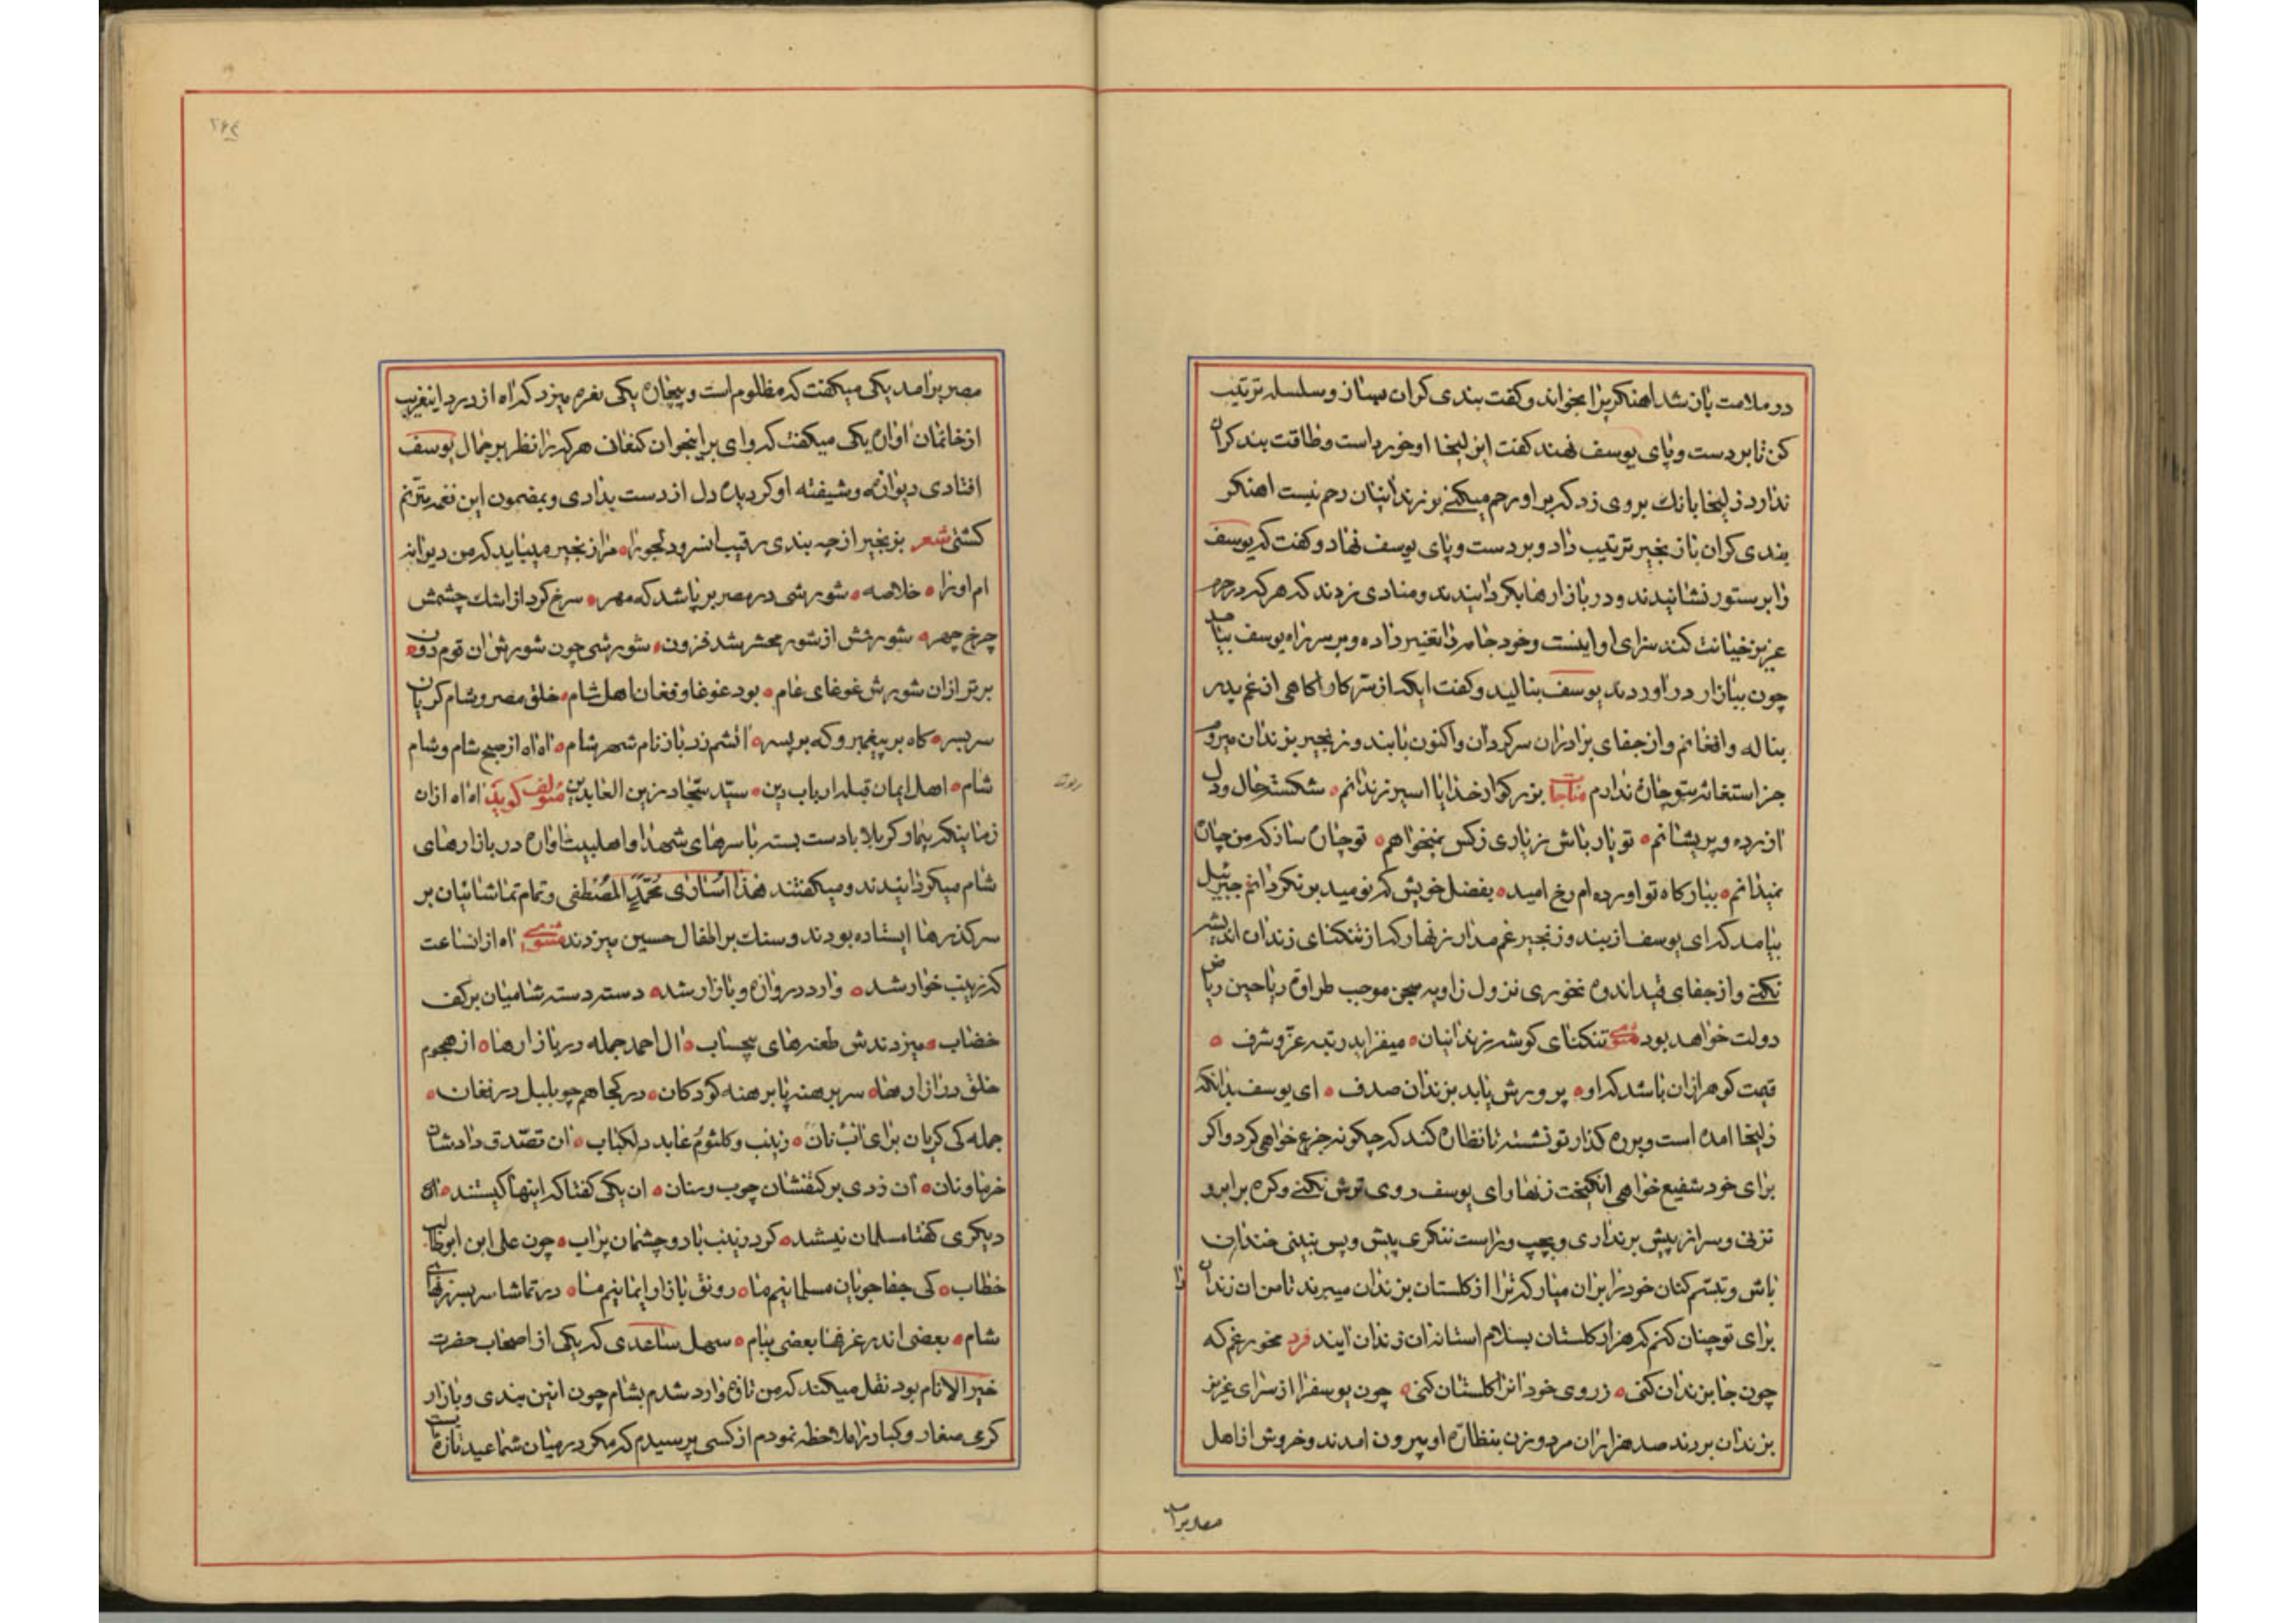 در ملامت بان شد اهنکریرا بخواند و کفت بندی کران بساز و سلسله ترتیب
کن تا بر دست و پای یوسف نهند کفت ای زلیخا او خورد است و طاقت بند کران
ندارد زلیخا بانك بر وی زد که بر او رحم میکنی بر زندانیان رحم نیست اهنکر
بندی کران با زنجیر ترتیب داد و بر دست و پای یوسف نهاد و کفت که یوسف
را بر ستور نشانیدند و در بازارها بکردانیدند و منادی زدند که هر که در حرم
عزیز خیانت کند سزای او اینست و خود جامه را تغییر داده و بر سر راه یوسف بیامد
چون ببازار در اوردند یوسف بنالید و کفت ایکه از سر کار اکاهی از غم پدر
بناله و افغانم و از جفای برادران سرکردان و اکنون با بند و زنجیر بزندان میروم
جز استغاثه بتو چاره ندارم مناجات بزرکوار خدایا اسیر زندانم شکسته حال و دل
ازرده و پریشانم تو یار باش ز یاری زکس نمیخواهم تو چاره ساز که من چاره
نمیدانم ببارکاه تو اورده ام رخ امید بفضل خویش که نومید بر نکردانم جبرئیل
بیامد که ای یوسف از بند و زنجیر غم مدار زنهار که از تنکنای زندان اندیشه
نکنی و از جفای قید اندوه نخوری نزول زاویه سجن موجب طراوة ریاحین ریاض
دولت خواهد بود مثنوی تنکنای کوشه زندانیان میفزاید رتبه عز و شرف
قیمت کوهر ازان باشد که او پرورش یابد بزندان صدف ای یوسف بدانکه
زلیخا امده است و بر ره کذار تو نشسته تا نظاره کند که چکونه جزع خواهی کرد و اکر
برای خود شفیع خواهی انکیخت زنهار ای یوسف روی ترش نکنی و کره بر ابرو
نزنی و سر از پیش برنداری و بچپ و راست ننکری پیش و پس نبینی خندان
باش و تبسم کنان خود را بران میار که ترا از کلستان بزندان میبرند تا من ان زندان
را
برای تو چنان کنم که هزار کلستان بسلام استانه ان زندان ایند فرد مخور غم که
چون جا بزندان کنی ز روی خود انرا کلستان کنی چون یوسفرا از سرای عزیز
بزندان بردند صد هزاران مرد و زن بنظاره او بیرون امدند و خروش از اهل
مصر برامد
مصر برامد یکی میکفت که مظلوم است و بیچاره یکی نعره میزد که اه از درد اینغریب
از خانمان اواره یکی میکفت که وای بر اینجوان کنعان هر که را نظر بر جمال یوسف
افتادی دیوانه و شیفته او کردیده دل از دست بدادی و بمضمون این نغمه مترنم
کشتی شعر بزنجیر از چه بندی رقیب انسرو دلجو را مرا زنجیر میباید که من دیوانه
ام او را خلاصه شورشی در مصر بر پا شد که مهر سرخ کرد از اشك چشمش
چرخ چهر شورشش از شور محشر شد فزون شورشی چون شورش ان قوم دون
برتر ازان شورش غوغای عام بود غوغا و فغان اهل شام خلق مصر و شام کریان
سر بسر کاه بر پیغمبر و که بر پسر اتشم زد باز نام شهر شام اه اه از صبح شام و شام
شام اهل ایمان قبله ارباب دین سید سجاد زین العابدین مؤلف کوید اه اه ازان
زمانیکه بیمار کربلا با دست بسته با سرهای شهدا و اهلبیت اواره در بازارهای
شام میکردانیدند و میکفتند هذا اساری محمد المصطفی و تمام تماشائیان بر
سر کذرها ایستاده بودند و سنك بر اطفال حسین میزدند مثنوی اه از انساعت
که زینب خوار شد وارد دروازه و بازار شد دسته دسته شامیان بر کف
خضاب میزدندش طعنه های بیحساب ال احمد جمله در بازارها از هجوم
خلق در ازارها سر برهنه پا برهنه کودکان در کجا هم چو بلبل در فغان
جمله کی کریان برای اب و نان زینب و کلثوم عابد دلکباب ان تصدق دادشان
خرما و نان ان زدی بر کتفشان چوب و سنان ان یکی کفتا که اینها کیستند ان
دیکری کفتا مسلمان نیستند کرد زینب با دو چشمان پر اب چون علی ابن ابوطالب
خطاب کی جفا جویان مسلمانیم ما رونق بازار ایمانیم ما در تماشا سر بسر زنهای
شام بعضی اندر غرفها بعضی ببام سهل ساعدی که یکی از اصحاب حضرت
خیر الانام بود نقل میکند که من تازه وارد شدم بشام چون ائین بندی و بازار
کرمی صغار و کبار را ملاحظه نمودم از کسی پرسیدم که مکر در میان شما عید تازه